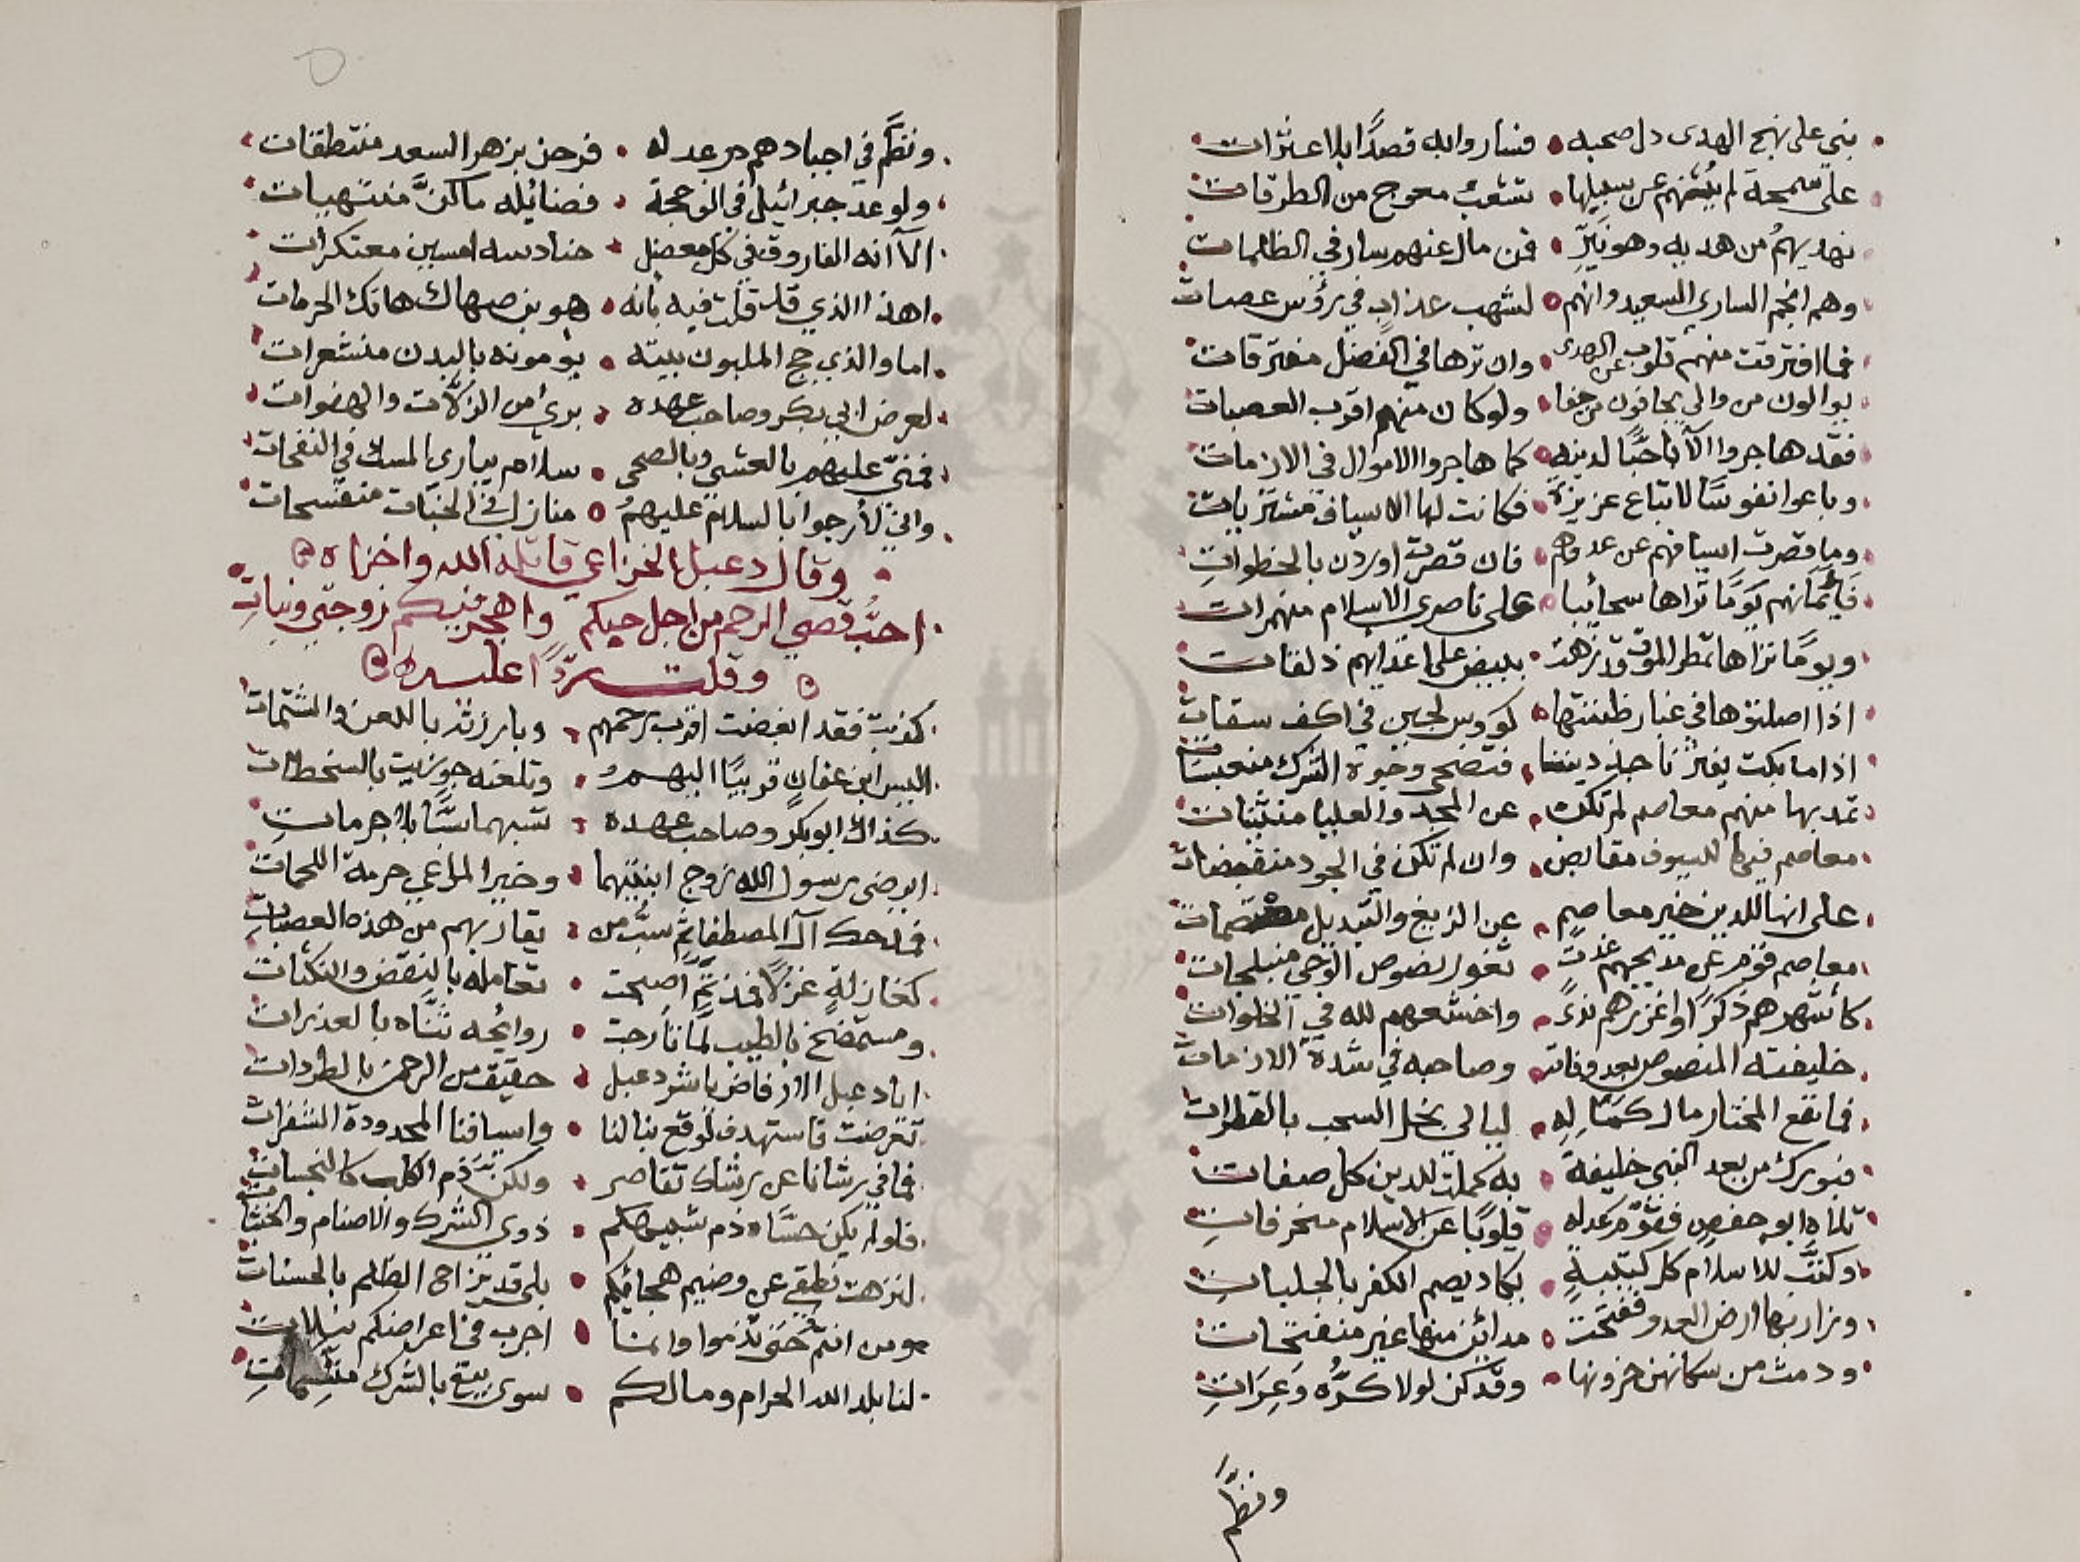 بني على نهج الهدى دل صحبه فساروا به قصدًا بلا عثرات
على سمحة لم يثنهم عن سبيلها تشعب معوج من الطرقات
نهديهمُ من هديه وهو نيّر فمن مال عنهم سار في الظلمات
وهم انجم الساري السعيد وانهم لشهب عذاب في رؤس عصات
فما افترقت منهم قلوب عن الهدى وان ترها في الفضل مفترقات
يوالون من والى يجافون من جفا ولو كان منهم اقرب العصبات
فقد هاجروا الآباحبًّا لدينه كما هاجروا الاموال في الازمات
وباعوا نفوسًا لاتباع عزيزة فكانت لها الاسياف مشتريات
وما قصرت اسيافهم عن عدوهم فان قصرت اوردن بالخطوات
فأيمانهم يومًا تراها سحائبا على ناصري الاسلام منهمرات
ويومًا تراها تمطر الموت قد زهت ببيض على اعدائهم ذلقات
اذا اصلتوها في غبار ظننتها كووس لجين في اكف سقات
اذا ما بكت يفتر ناجذ ديننا فتضحى وجوه الشرك منعبسات
تمد بها منهم معاصم لم تكن عن المجد والعليا منثنيات
معاصم فيها للسيوف مقابض وان لم تكن في الجود منقبضات
على انها للدين خير معاصم عن الزيغ والتبديل معتصمات
معاصم قوم عن مديحهم غدت ثغور نصوص الوحي منبلجات
كأشهرهم ذكرًا واغزرهم ندى واخشعهم لله في الخلوات
خليفته المنصوص بعد وفاته وصاحبه في شدة الازمات
فما نفع المختار مال كمالِهِ ليالي بخل السحب بالقطرات
فبورك من بعد النبي خليفة به كملت للدين كل صفات
تلاه ابو حفص فقوّم عدله قلوبًا عن الاسلام منحرفات
وكتَّب للاسلام كل كتيبةٍ يكاد يصم الكفر بالجلبات
وزار بها ارض العدو ففتحت مدائن منها غير منفتحات
ودمث من سكانهن حزونها وقد كن لولا كرُّه وَعِرَاتِ
ونظم
ونظّم في اجيادهم در عدله فرحن بزهر السعد منتطقات
ولو عد جبرائيل في الوحجة فضائله ما كنَّ منتهيات
الا انه الفاروق في كل معضل حنادسه امسين معتكرات
اهذا الذي قد قلت فيه بانه هو بن صهاك هاتك الحرمات
اما والذي حج الملبون بيته يؤمونه بالبدن منشعرات
لعرض ابي بكر وصاحب عهده بري من الزلات والهفوات
فمنّي عليهم بالعشي وبالضحى سلام يباري المسك في النفحات
واني لأرجوا بالسلام عليهمُ منازل في الجنات منفسحات
وقال دعبل الخزاعي قاتله الله واخزاه
احبُّ قصي الرحم من اجل حبكم واهجر فيكم زوجتي وبناتِ
وقلت ردًّا عليه
كذبت فقد ابغضت اقرب رحمهم وبارزته باللعن والشتمات
اليس ابن عفان قريبًا اليهمُ وتلعنه جوزيت بالسخطات
كذاك ابوبكر وصاحب عهده تسبهما سبًّا بلا حرماتِ
ايرضى رسول الله زوج ابنتيهما وخير المراعي حرمة اللحمات
فمدحك آل المصطفا ثم سبُّ من يقاربهم من هذه العصبات
كغازلة غزلًا فمذ تمّ اصبحت تعامله بالنقض والنكثات
ومستمضخ بالطيب لما تأرجت روائحه ثنّاه بالعذرات
ايا دعبل الارفاض يا شر دعبل حقيق من الرحمن بالطردات
تعرضت فاستهدف لوقع نبالنا واسيافنا المحدودة الشفرات
فما في رشانا عن رشاك تقاصر ولكن ذم الكلب كالنجسات
فلو لم يكن حسّان ذم شبيهكم ذوي الشرك والاصنام والخبثات
لنزهت نطقي عن وضيم هجائكم بلى قد يزاح الظلم بالحسنات
ومن انتم حتى تذموا وانما اجرب في اعراضكم نبلات
لنا بلد الله الحرام ومالكم سوى بيع بالشرك متسمات